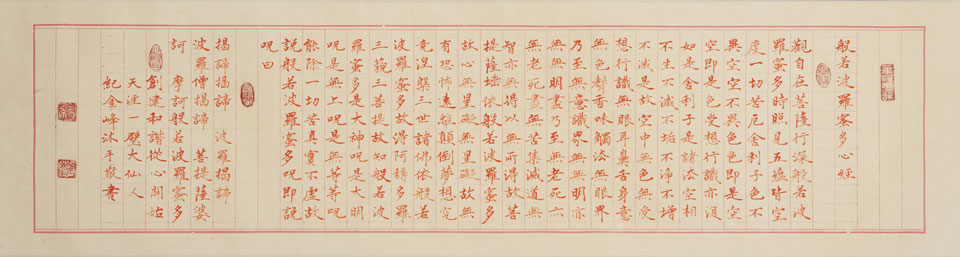 般若波羅蜜多心經
觀自在菩薩行深般若波
羅蜜多時照見五蘊皆空
度一切苦厄舍利子色不
異空空不異色色即是空
空即是色受想行識亦復
如是舍利子是諸法空相
不生不滅不垢不淨不增
不減是故空中無色無受
想行識無眼耳鼻舌身意
無色聲香味觸法無眼界
乃至無意識界無無明亦
無無明盡乃至無老死亦
無老死盡無苦集滅道無
智亦無得以無所得故菩
提薩埵依般若波羅蜜多
故心無罣礙無罣礙故無
有恐怖遠離顛倒夢想究
竟涅槃三世諸佛依般若
波羅蜜多故得阿耨多羅
三藐三菩提故知般若波
羅蜜多是大神呪是大明
呪是無上呪是無等等呪
能除一切苦真實不虛故
說般若波羅蜜多呪即說
呪曰
揭諦揭諦 波羅揭諦
波羅僧揭諦 菩提薩婆
訶 摩訶般若波羅蜜多
創建和諧從心開始
天涯一壁大仙人
紀金峰沐手敬書